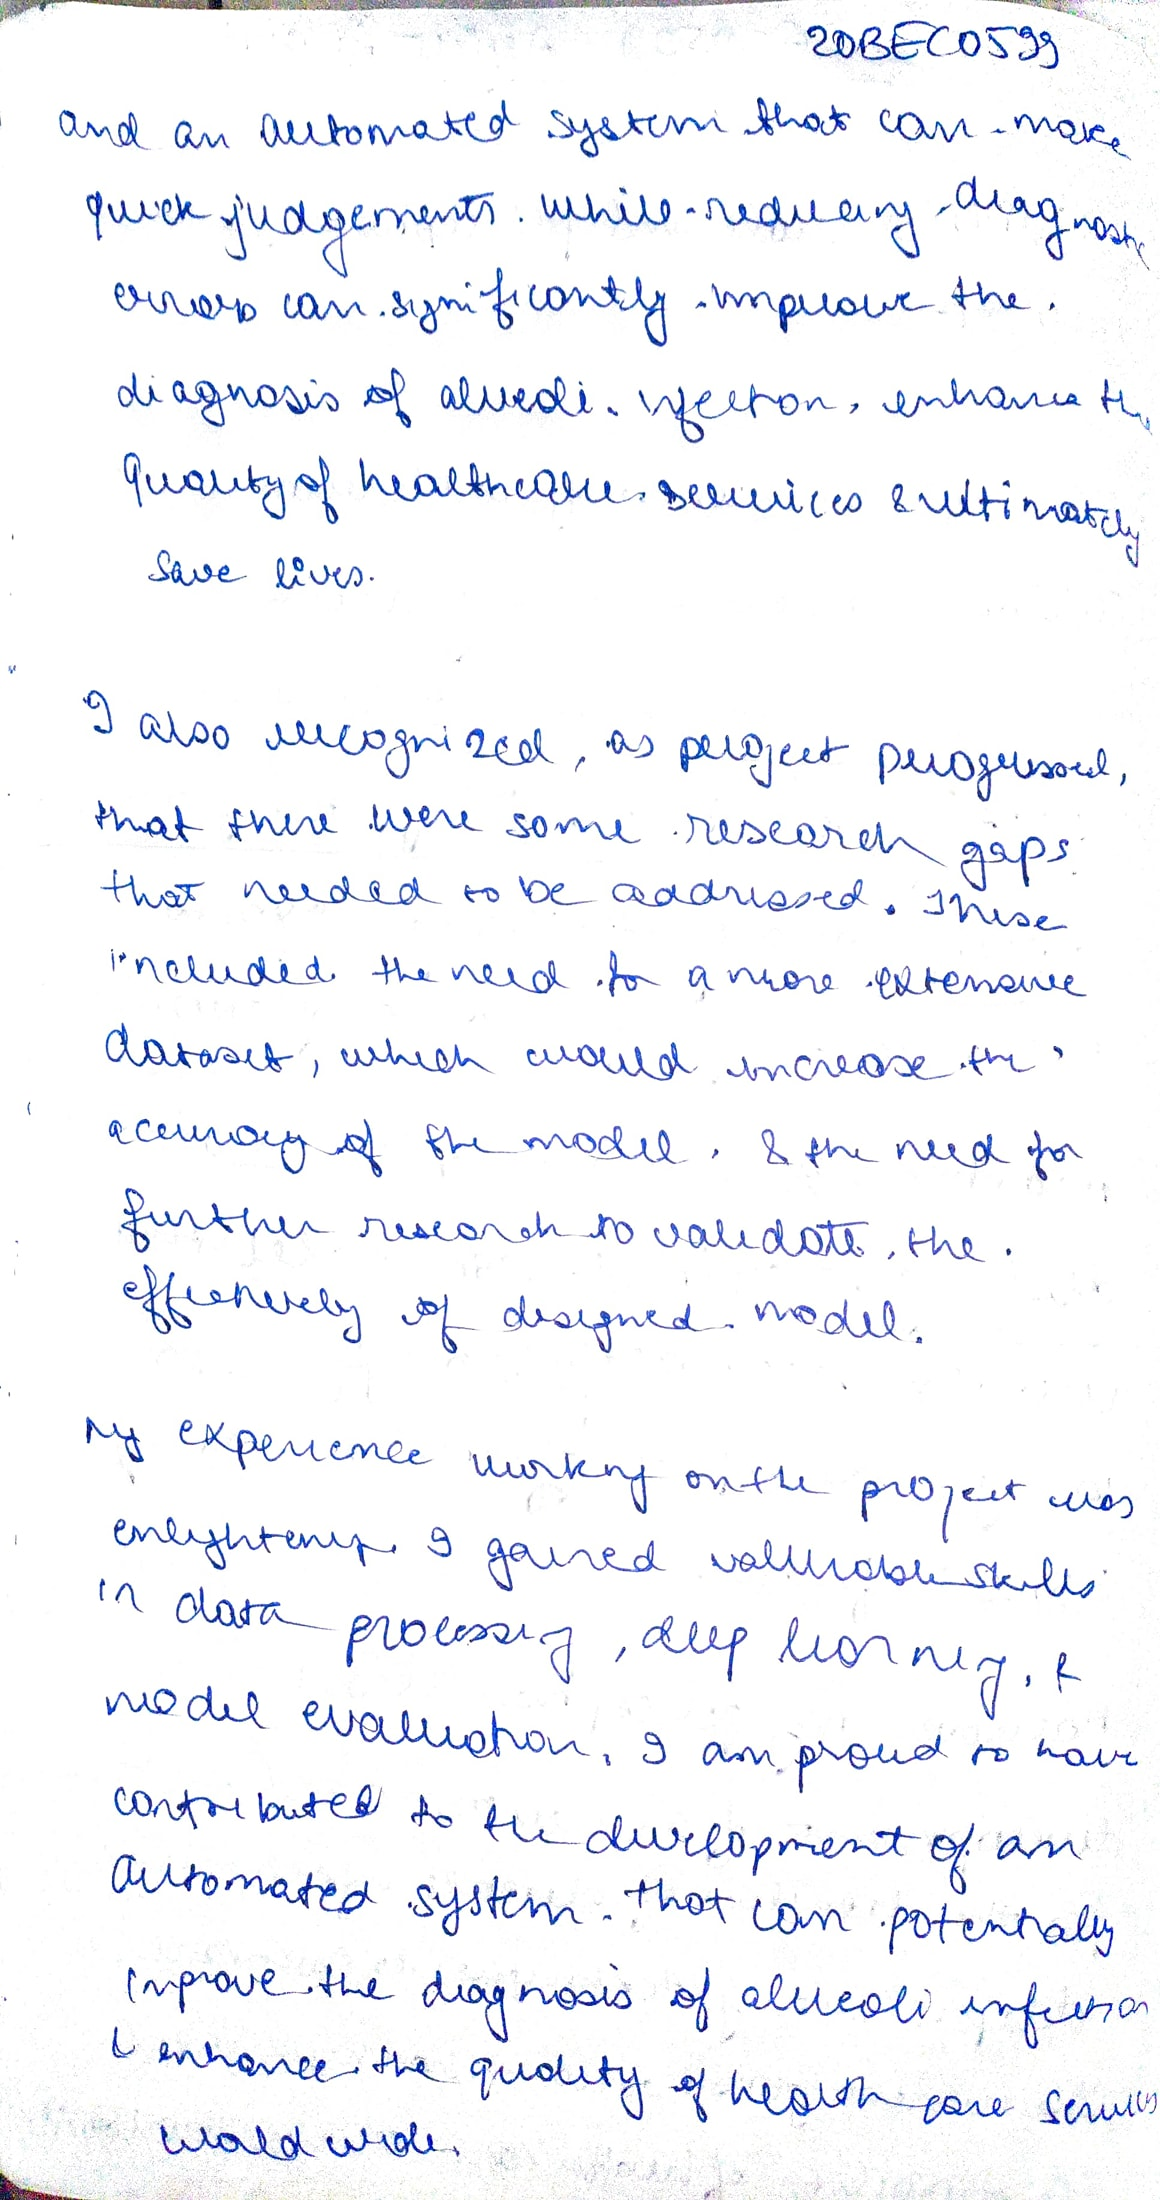 20BEC0599
and an automated system that can make
quick judgements while reducing diagnostic
errors can significantly improve the
diagnosis of alveoli infection, enhance the
quality of healthcare services & ultimately
save lives.
I also recognized, as project progressed,
that there were some research gaps
that needed to be addressed. These
included the need for a more extensive
dataset, which would increase the
accuracy of the model, & the need for
further research to validate the
effectively of designed model.
My experience working on the project was
enlightening. I gained valuable skills
in data processing, deep learning, &
model evaluation. I am proud to have
contributed to the development of an
automated system that can potentially
improve the diagnosis of alveoli infection
& enhance the quality of health care services
world wide.